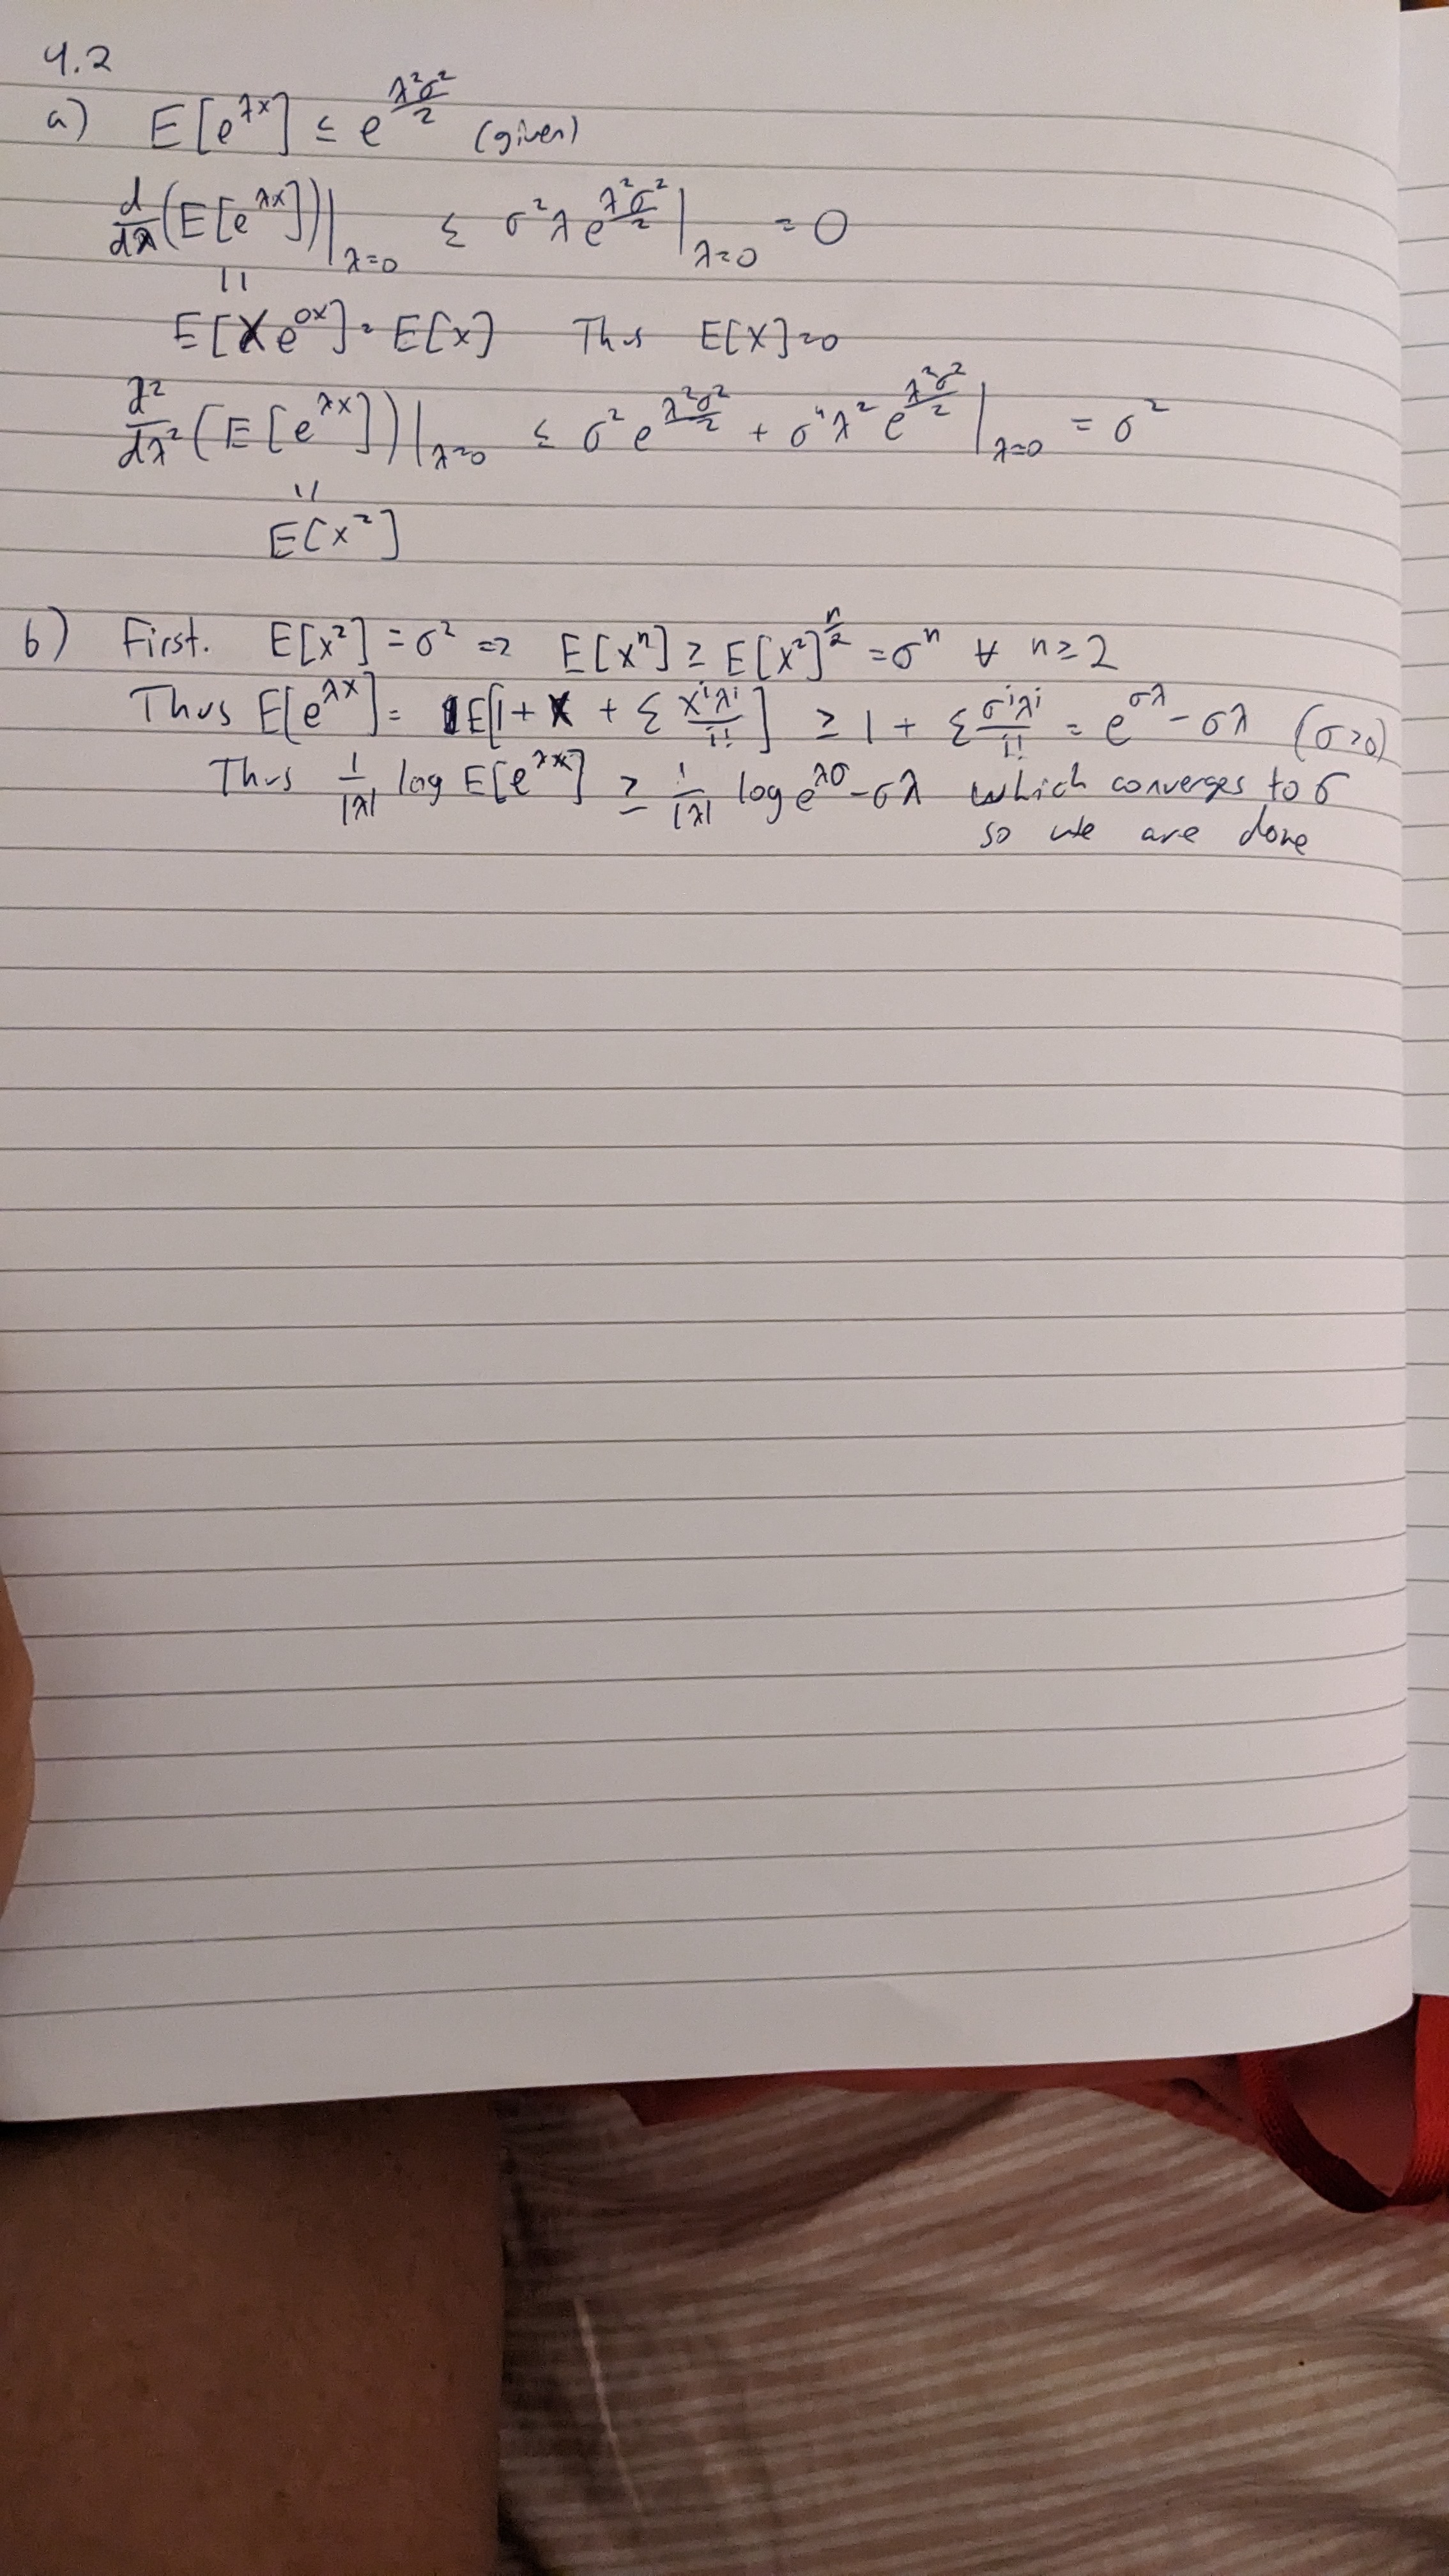 4.2
a) E[e^{λx}] ≤ e^{\frac{λ²σ²}{2}} (given)
\frac{d}{dλ}(E[e^{λx}])|_{λ=0} ≤ σ²λe^{\frac{λ²σ²}{2}}|_{λ=0} = 0
||
E[Xe^{0x}] = E[x] Thus E[X]=0
\frac{d²}{dλ²}(E[e^{λx}])|_{λ=0} ≤ σ²e^{\frac{λ²σ²}{2}} + σ⁴λ²e^{\frac{λ²σ²}{2}}|_{λ=0} = σ²
||
E[x²]
b) First. E[x²] = σ² => E[xⁿ] ≥ E[x²]^{\frac{n}{2}} = σⁿ ∀ n≥2
Thus E[e^{λx}] = E[1 + X + Σ \frac{x^i λ^i}{i!}] ≥ 1 + Σ \frac{σ^i λ^i}{i!} = e^{σλ} - σλ (σ>0)
Thus \frac{1}{|λ|} log E[e^{λx}] ≥ \frac{1}{|λ|} log e^{λσ} - σλ which converges to σ
so we are done